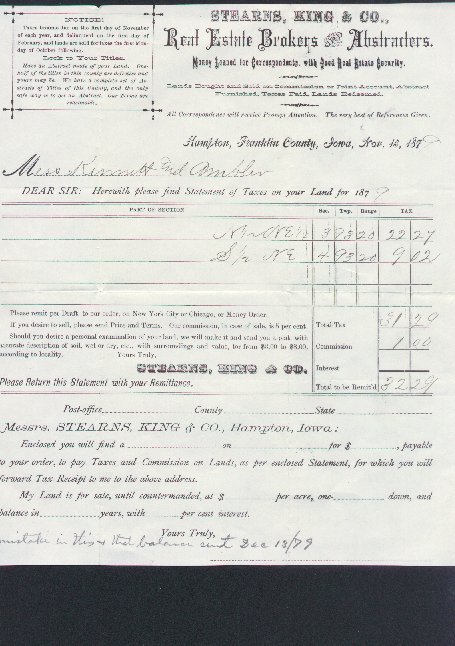 NOTICE!
Taxes become due on the first day of November
of each year, and delinquent on the first day of
February, and lands are sold for taxes the first Mon-
day of October following.
Look to Your Titles.
Have an Abstract made of your Lands. One-
half of the titles in this county are defective and
yours may be. We have a complete set of Ab-
stracts of Titles of this County, and the only
safe way is to get an Abstract. Our Terms are
reasonable.
STEARNS, KING & CO.,
Real Estate Brokers and Abstracters.
Money Loaned for Correspondents, with Good Real Estate Security.
Lands Bought and Sold on Commission or Joint Account, Abstract
Furnished, Taxes Paid, Lands Redeemed.
All Correspondents will receive Prompt Attention. The very best of References Given.
Hampton, Franklin County, Iowa, Nov. 12, 1879
Mess Kinnutt and Ambler
DEAR SIR: Herewith please find Statement of Taxes on your Land for 1879
PART OF SECTION Sec. Twp. Range TAX
NE 3 93 20 22 27
S/2 NE 4 93 20 9 02
Please remit per Draft to our order, on New York City or Chicago, or Money Order.
If you desire to sell, please send Price and Terms. Our commission, in case of sale, is 5 per cent
Should you desire a personal examination of your land, we will make it and send you a plat, with
accurate description of soil, wet or dry, etc., with surroundings and value, for from $3.00 to $8.00,
according to locality. Yours Truly,
STEARNS, KING & CO.
Please Return this Statement with your Remittance.
Total Tax 31 29
Commission 1 00
Interest
Total to be Remit'd 32 29
Post-office County State
Messrs. STEARNS, KING & CO., Hampton, Iowa:
Enclosed you will find a on for $ , payable
to your order, to pay Taxes and Commission on Lands, as per enclosed Statement, for which you will
forward Tax Receipt to me to the above address.
My Land is for sale, until countermanded, at $ per acre, one- down, and
balance in years, with per cent interest.
Yours Truly,
mistake in this & that balance sent Dec 13/79